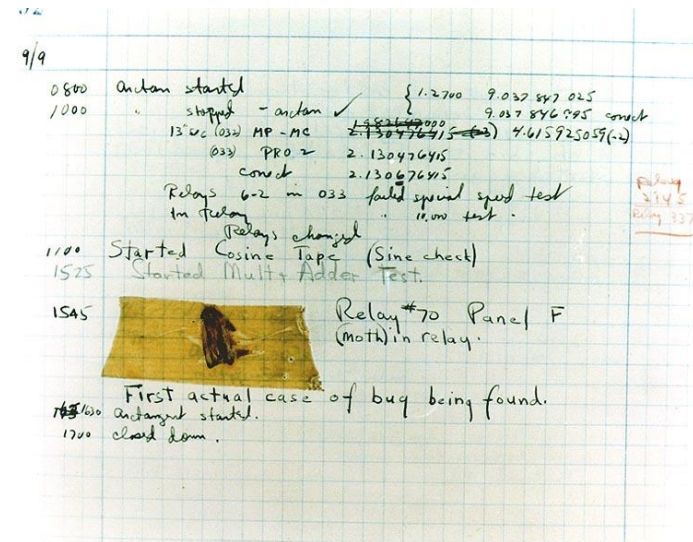 9/9
0800 Arctan started { 1.2700 9.037 847 025
1000 " stopped - arctan ✓ 9.037 846 995 conect
13"uc (032) MP-MC 2.130476415 (-3) 4.615925059(-2)
(033) PRO 2 2.130476415
conect 2.130676415
Relays 6-2 in 033 failed special speed test
In Relay " 10,000 test.
Relays changed
1100 Started Cosine Tape (Sine check)
1525 Started Mult+ Adder Test.
1545 Relay #70 Panel F
(moth) in relay.
First actual case of bug being found.
1630 arctangent started.
1700 closed down.
Relay
Relay 337